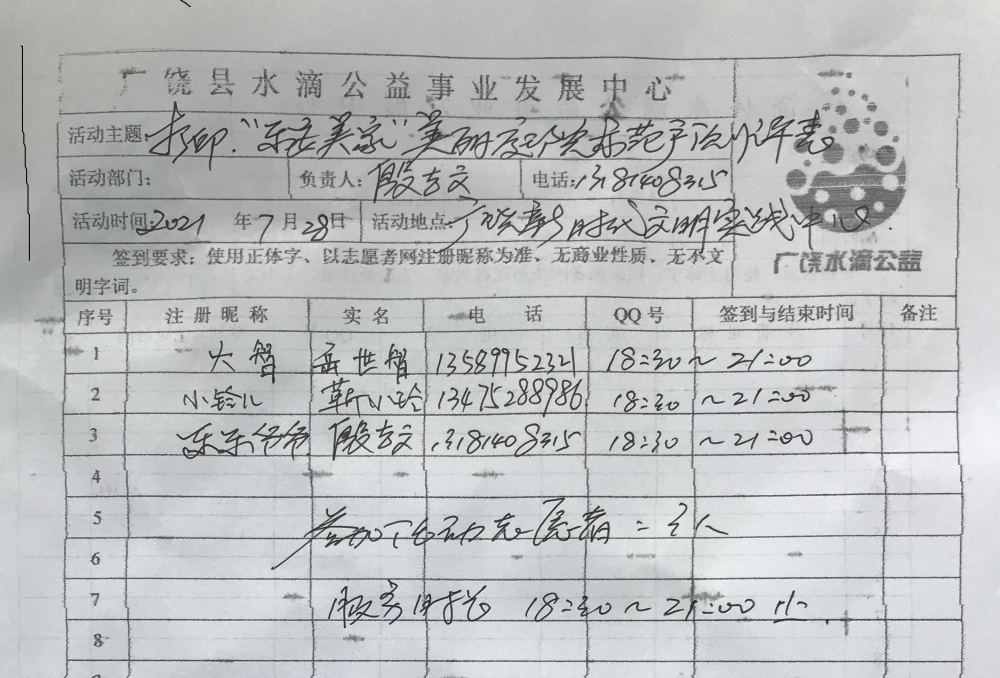 广饶县水滴公益事业发展中心
活动主题 打印"乐安美家"美丽庭院示范户评表
活动部门: 负责人: 殷方文 电话: 13181408315
活动时间: 2021 年 7 月 28 日 活动地点: 广饶新时代文明实践中心
签到要求: 使用正体字、以志愿者网注册昵称为准、无商业性质、无不文
明字词。
广饶水滴公益
序号 注册昵称 实名 电话 QQ号 签到与结束时间 备注
1 大智 岳世智 13589952321 18:30~21:00
2 小铃儿 靳小玲 13475288986 18:30~21:00
3 乐乐爷爷 殷方文 13181408315 18:30~21:00
4
5 参加活动志愿者:3人
6
7 服务时长 18:30~21:00
8